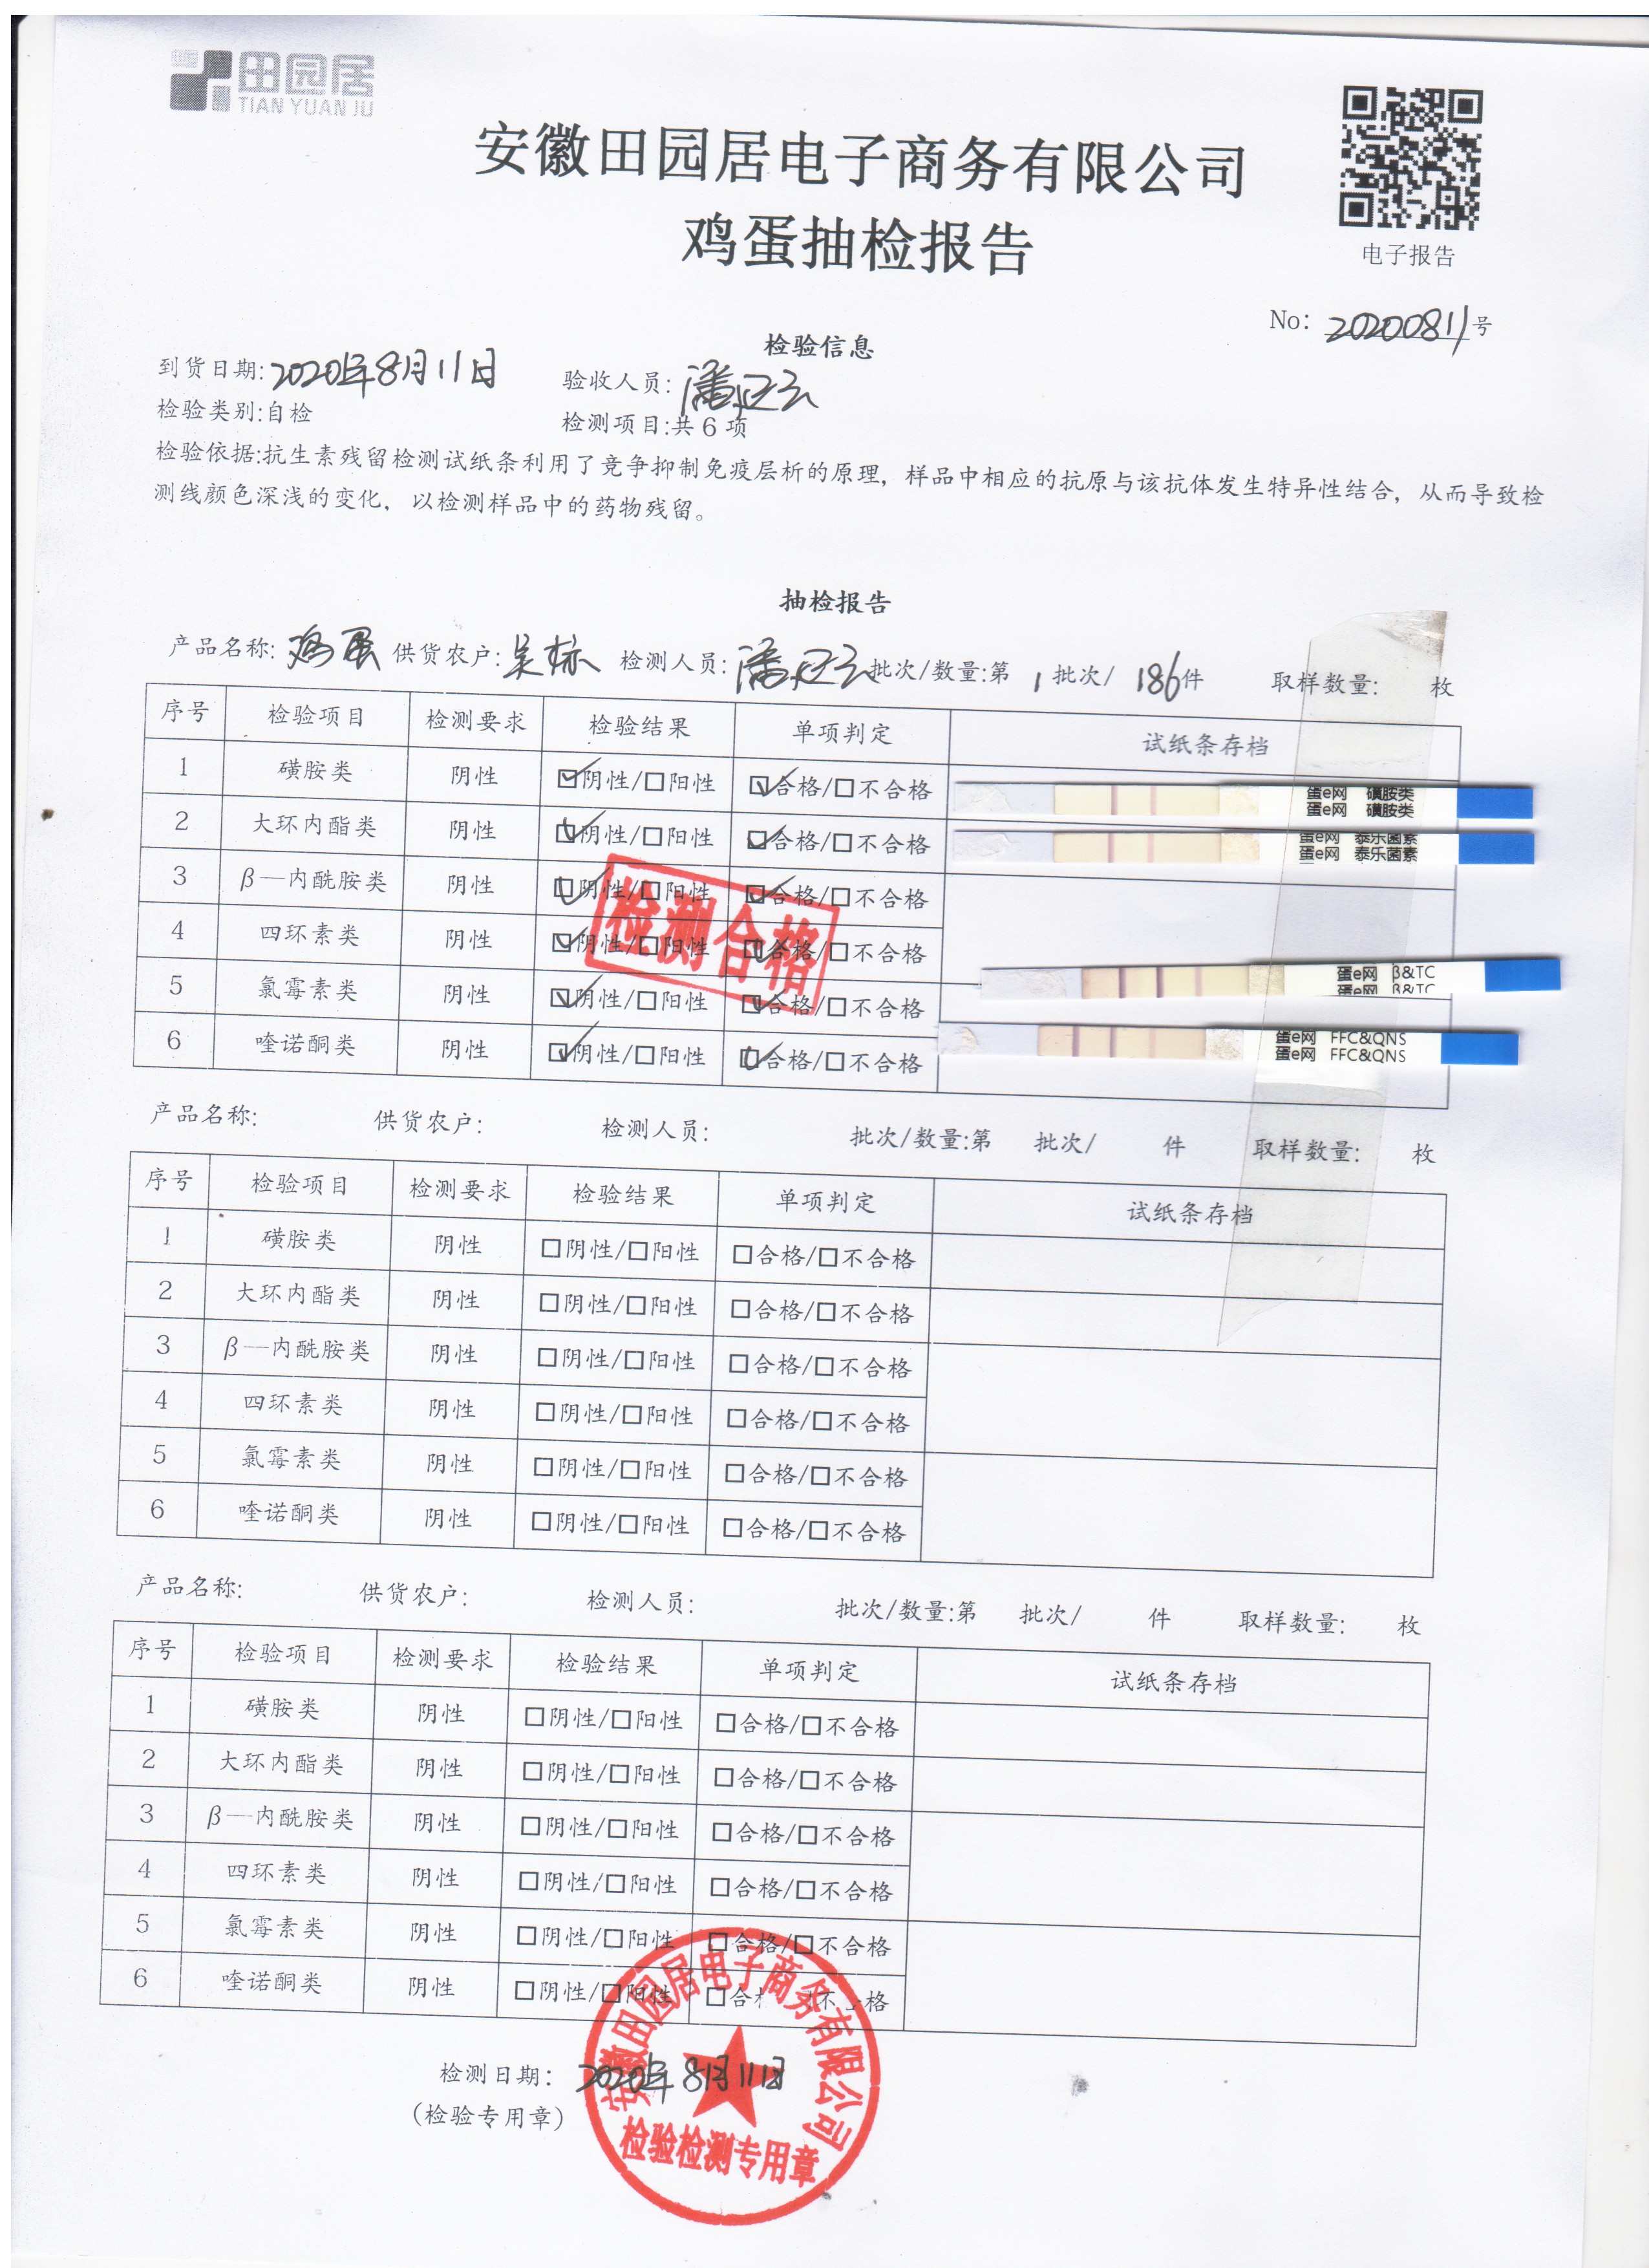 田园居
TIAN YUAN JU
安徽田园居电子商务有限公司
鸡蛋抽检报告
电子报告
No: 20200811号
检验信息
到货日期:2020年8月11日 验收人员:潘
检验类别:自检 检测项目:共6项
检验依据:抗生素残留检测试纸条利用了竞争抑制免疫层析的原理，样品中相应的抗原与该抗体发生特异性结合，从而导致检
测线颜色深浅的变化，以检测样品中的药物残留。
抽检报告
产品名称:鸡蛋 供货农户:吴 检测人员:潘 批次/数量:第1批次/186件 取样数量: 枚
序号 检验项目 检测要求 检验结果 单项判定 试纸条存档
1 磺胺类 阴性 ☑阴性/□阳性 ☑合格/□不合格 蛋e网 磺胺类
蛋e网 磺胺类
2 大环内酯类 阴性 ☑阴性/□阳性 ☑合格/□不合格 蛋e网 泰乐菌素
蛋e网 泰乐菌素
3 β—内酰胺类 阴性 ☑阴性/□阳性 ☑合格/□不合格
检测合格
4 四环素类 阴性 ☑阴性/□阳性 ☑合格/□不合格 蛋e网 β&TC
蛋e网 β&TC
5 氯霉素类 阴性 ☑阴性/□阳性 ☑合格/□不合格
6 喹诺酮类 阴性 ☑阴性/□阳性 ☑合格/□不合格 蛋e网 FFC&QNS
蛋e网 FFC&QNS
产品名称: 供货农户: 检测人员: 批次/数量:第 批次/ 件 取样数量: 枚
序号 检验项目 检测要求 检验结果 单项判定 试纸条存档
1 磺胺类 阴性 □阴性/□阳性 □合格/□不合格
2 大环内酯类 阴性 □阴性/□阳性 □合格/□不合格
3 β—内酰胺类 阴性 □阴性/□阳性 □合格/□不合格
4 四环素类 阴性 □阴性/□阳性 □合格/□不合格
5 氯霉素类 阴性 □阴性/□阳性 □合格/□不合格
6 喹诺酮类 阴性 □阴性/□阳性 □合格/□不合格
产品名称: 供货农户: 检测人员: 批次/数量:第 批次/ 件 取样数量: 枚
序号 检验项目 检测要求 检验结果 单项判定 试纸条存档
1 磺胺类 阴性 □阴性/□阳性 □合格/□不合格
2 大环内酯类 阴性 □阴性/□阳性 □合格/□不合格
3 β—内酰胺类 阴性 □阴性/□阳性 □合格/□不合格
4 四环素类 阴性 □阴性/□阳性 □合格/□不合格
5 氯霉素类 阴性 □阴性/□阳性 □合格/□不合格
6 喹诺酮类 阴性 □阴性/□阳性 □合格/□不合格
检测日期: 2020年8月11日
（检验专用章）
安徽田园居电子商务有限公司
检验检测专用章